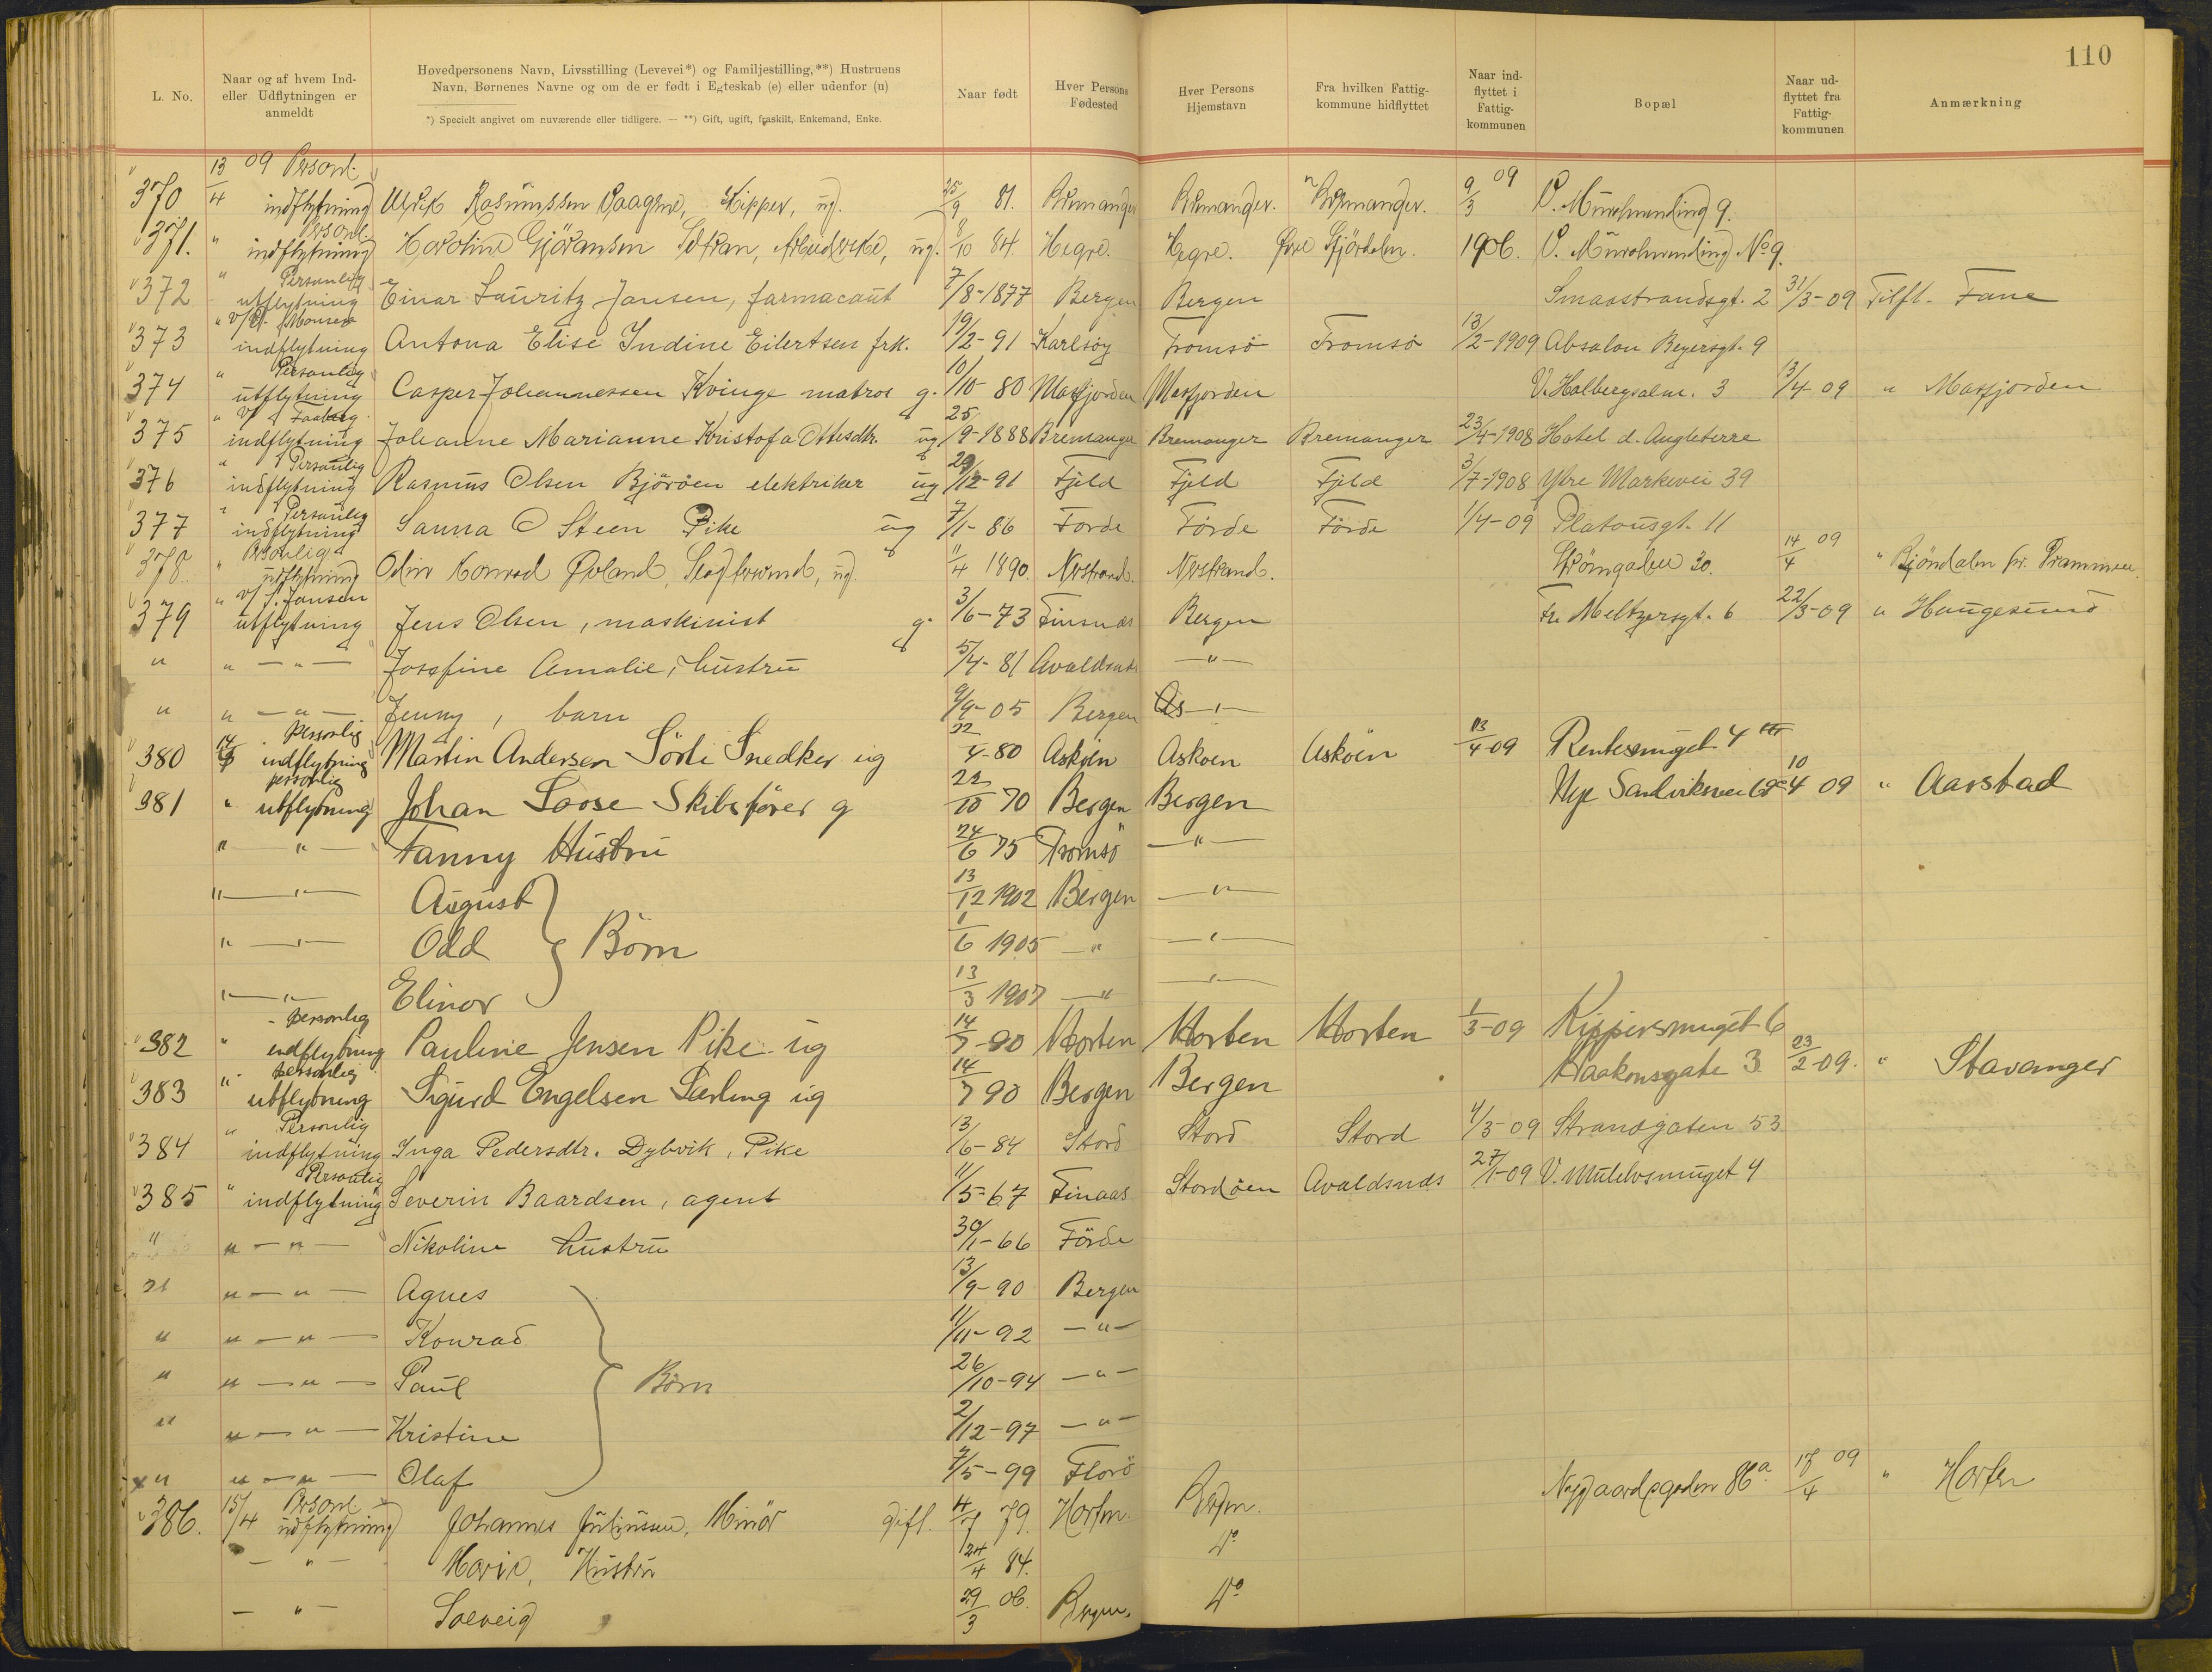 110
L. No.
Naar og af hvem Ind- eller Udflytningen er anmeldt
Hovedpersonens Navn, Livsstilling (Levevei*) og Familjestilling,**) Hustruens Navn, Børnenes Navne og om de er født i Egteskab (e) eller udenfor (u)
*) Specielt angivet om nuværende eller tidligere. — **) Gift, ugift, fraskilt, Enkemand, Enke.
Naar født
Hver Persons Fødested
Hver Persons Hjemstavn
Fra hvilken Fattigkommune hidflyttet
Naar indflyttet i Fattigkommunen
Bopæl
Naar udflyttet fra Fattigkommunen
Anmærkning
370 13/4 09 Personl. indflytning Ulrik Rasmussen Kipper, ug. 25/9 81. Bremanger Bremanger. Bremanger. 9/3 09 9.
371. " Personl. indflytning ug. 8/10 84. Hegre. Hegre. Øvre Stjørdalen. 1906. No 9.
372 " Personlig utflytning Einar Lauritz Jansen, farmacaut 7/8-1877 Bergen Bergen Smaastrandsgt. 2 31/3-09 Tilfl. Fane
373 " v/ Monsen indflytning Antona Elise Indine Eilertsen frk. 19/2-91 Karlsöy Tromsö Tromsö 13/2-1909 Absalon Beyersgt. 9
374 " Personlig utflytning Casper Johannessen Kvinge matros g. 10/10-80 Masfjorden Masfjorden V. Holbergsalm. 3 13/4 09 " Masfjorden
375 " v/ Faaberg indflytning Johanne Marianne Kristofa Ottesdtr. ug 25/9-1888 Bremanger Bremanger Bremanger 23/4-1908 Hotel d. Angleterre
376 " Personlig indflytning Rasmus Olsen Björöen elektriker ug 29/12-91 Fjeld Fjeld Fjeld 3/7-1908 Ytre Markevei 39
377 " Personlig indflytning Sanna O Steen Pike ug 7/1-86 Förde Förde Förde 1/4-09 Platousgt. 11
378. " Personlig udflytning Odin Konrad ug. 11/4 1890. Nerstrand. Nerstrand. Strømgaden 30. 14/4 09 " Mjöndalen pr. Drammen
379 " v/ J. Jansen utflytning Jens Olsen, maskinist g. 3/6-73 Finsnæs Bergen Fr. Meltzersgt. 6 22/3-09 " Haugesund
" " — " — Josefine Amalie, hustru 5/4-81 Avaldsnes — " —
" " — " — Jenny, barn 9/9-05 Bergen — " —
380 14/4 personlig indflytning Martin Andersen Sörli Snedker ug 22/4-80 Asköen Askoen Asköen 13/4 09 Rentesmuget 4
381 " personlig utflytning Johan Loose Skibsförer g 22/10 70 Bergen Bergen Nye Sandviksvei 10/4 09 " Aarstad
" — " — Fanny Hustru 24/6 75 Tromsö — " —
" — " — August } Börn 13/12 1902 Bergen — " —
" — " — Odd 1/6 1905 — " — " —
" — " Elinor 13/3 1907 — " — " —
382 " personlig indflytning Pauline Jensen Pike ug 14/7-90 Horten Horten Horten 1/3-09 Kippersmuget 6
383 " personlig utflytning Sigurd Engelsen Særling ug 14/7 90 Bergen Bergen Haakonsgate 3 23/2-09. " Stavanger
384 " Personlig indflytning Inga Pedersdtr. Dybvik, Pike 13/6-84 Stord Stord Stord 4/3-09 Strandgaten 53
385 " Personlig indflytning Severin Baardsen, agent 11/5-67 Finaas Stordöen Avaldsnds 27/1-09 V. Murelvsmuget 4
" " — " — Nikoline hustru 30/1-66 Förde
" " — " — Agnes 13/9-90 Bergen
" " — " — Konrad 11/11-92 — " —
" " — " — Paul } Börn 26/10-94 — " —
" " — " — Kristine 2/12-97 — " —
x " " — " — Olaf 7/5-99 Florö
386. 15/4 Personl. udflytning Johannes Juliussen, Minör gift. 4/7 79. Horten. Bergen. Nygaardsgaden 86a 17/4 09 " Horten
— " — Marie, Hustru 24/4 84. Do
— " — Solveig 29/3 06. Bergen. Do